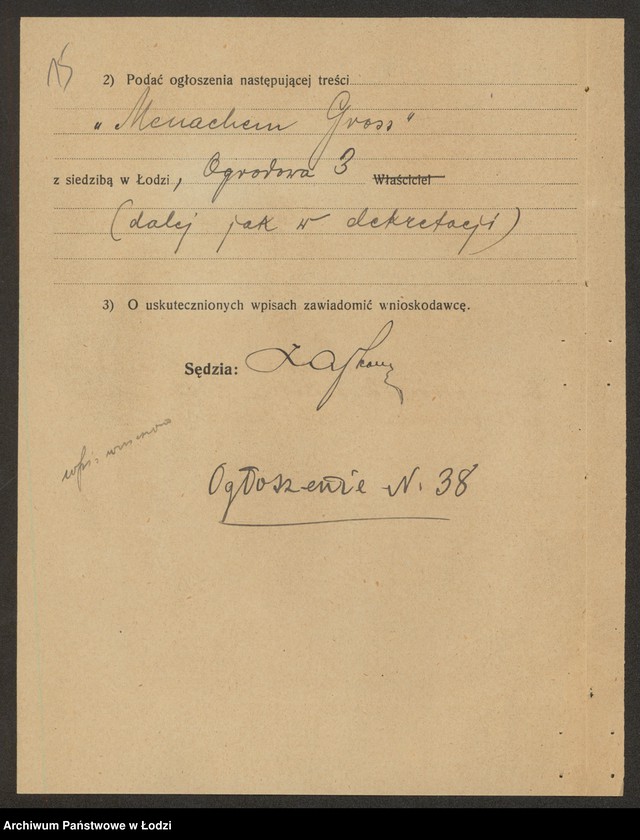 2) Podać ogłoszenia następującej treści
„Menachem Gross"
z siedzibą w Łodzi, Ogrodowa 3 Właściciel
(dalej jak w dekretacji)
3) O uskutecznionych wpisach zawiadomić wnioskodawcę.
Sędzia:
Ogłoszenie N. 38
Archiwum Państwowe w Łodzi